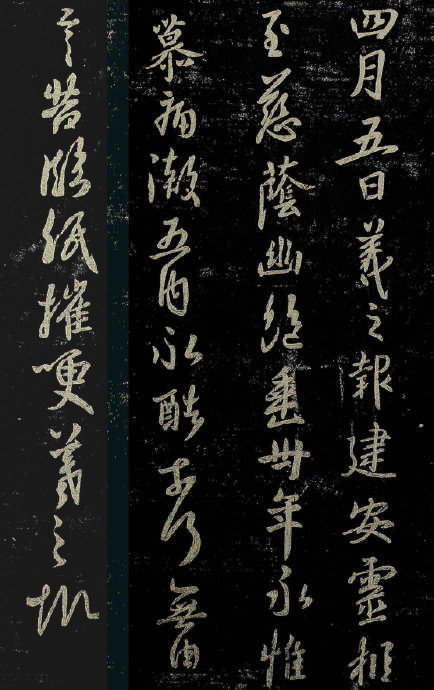 四月五日羲之報建安靈柩
至慈蔭幽絕垂卅年永惟
崇慕痛徹五內永酷奈何無由
言告臨紙摧哽羲之報